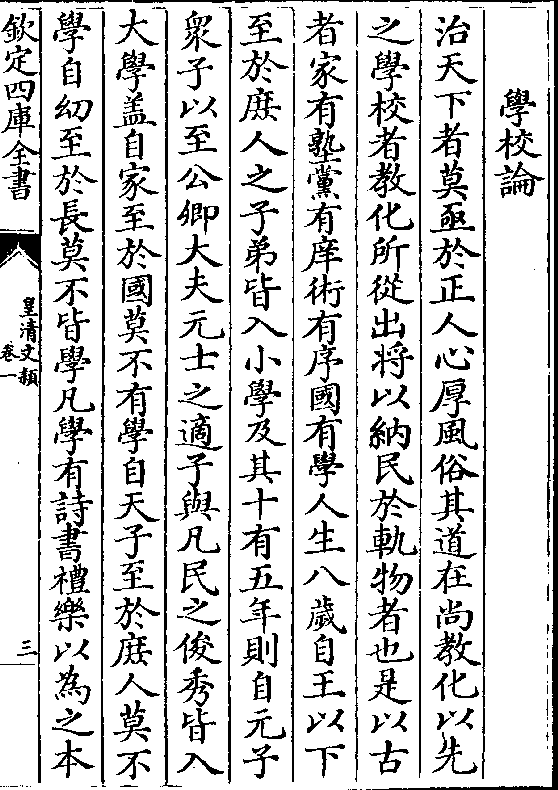 學校論
治天下者莫亟於正人心厚風俗其道在尚教化以先
之學校者教化所從出将以納民於軌物者也是以古
者家有塾黨有庠術有序國有學人生八歲自王以下
至於庶人之子弟皆入小學及其十有五年則自元子
衆子以至公卿大夫元士之適子與凡民之俊秀皆入
大學盖自家至於國莫不有學自天子至於庶人莫不
學自幼至於長莫不皆學凡學有詩書禮樂以為之本
欽定四庫全書
皇清文頴
卷一
三